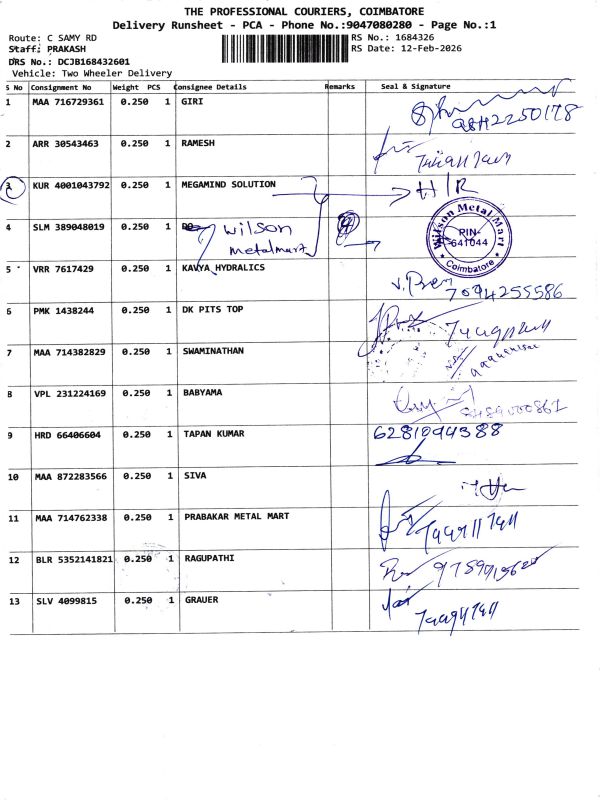 THE PROFESSIONAL COURIERS, COIMBATORE
Delivery Runsheet - PCA - Phone No.:9047080280 - Page No.:1
Route: C SAMY RD
RS No.: 1684326
Staff: PRAKASH
RS Date: 12-Feb-2026
DRS No.: DCJB168432601
Vehicle: Two Wheeler Delivery
S No Consignment No Weight PCS Consignee Details Remarks Seal & Signature
1 MAA 716729361 0.250 1 GIRI
2 ARR 30543463 0.250 1 RAMESH
3 KUR 4001043792 0.250 1 MEGAMIND SOLUTION H/R
4 SLM 389048019 0.250 1 Wilson
metalmart
Wilson Metal Mart
PIN-
641044
Coimbatore
5 VRR 7617429 0.250 1 KAVYA HYDRALICS
7094255586
6 PMK 1438244 0.250 1 DK PITS TOP
7 MAA 714382829 0.250 1 SWAMINATHAN
8 VPL 231224169 0.250 1 BABYAMA
9 HRD 66406604 0.250 1 TAPAN KUMAR 6281094388
10 MAA 872283566 0.250 1 SIVA
11 MAA 714762338 0.250 1 PRABAKAR METAL MART
12 BLR 5352141821 0.250 1 RAGUPATHI
13 SLV 4099815 0.250 1 GRAUER